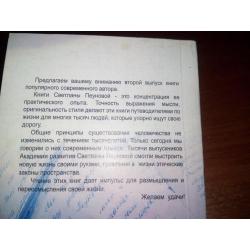 Предлагаем вашему вниманию второй выпуск книги
популярного современного автора.
Книги Светланы Пеуновой - это концентрация ее
практического опыта. Точность выражения мысли,
оригинальность стиля делают эти книги путеводителями по
жизни для многих тысяч людей, которые упорно ищут свою
дорогу.
Общие принципы существования человечества не
изменились с течением тысячелетий. Только сегодня мы
говорим о них современным языком. Тысячи выпускников
Академии развития Светланы Пеуновой смогли выстроить
новую жизнь своими руками, привлекая в жизнь этические
законы пространства.
Чтение этих книг дает импульс для размышления и
переосмысления своей жизни.
Желаем удачи!